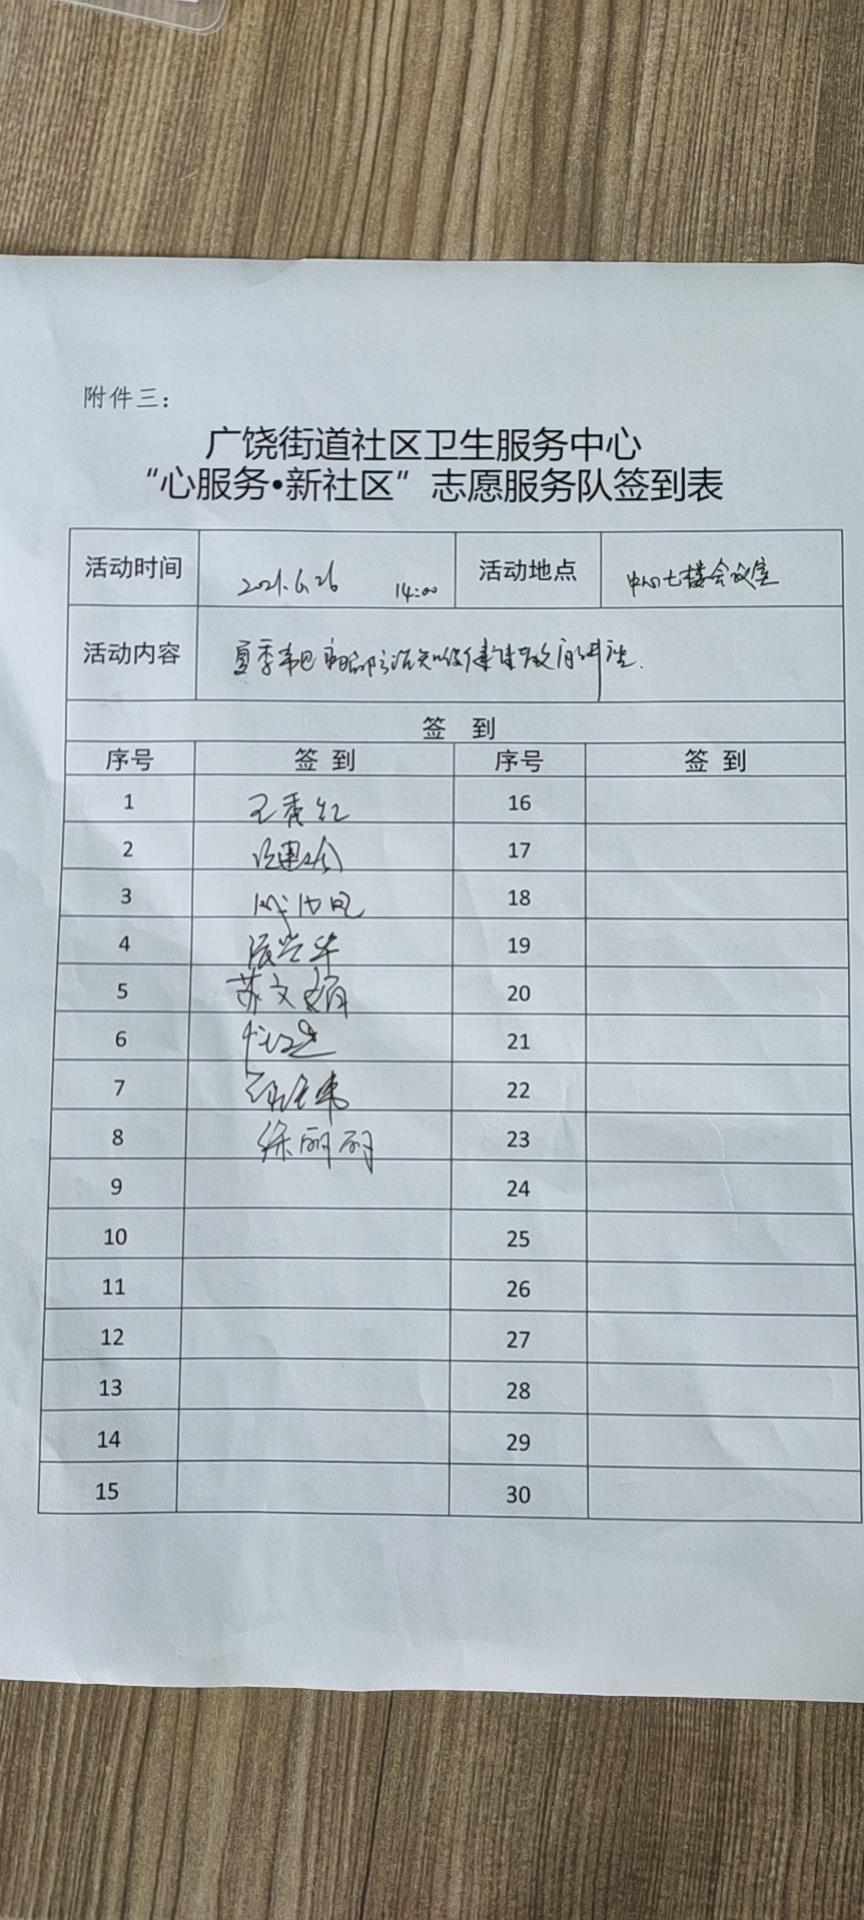 附件三：
广饶街道社区卫生服务中心
“心服务•新社区”志愿服务队签到表
活动时间 2021.6.26 14:00 活动地点 中心七楼会议室
活动内容 夏季 知识健康教育讲座.
签 到
序号 签 到 序号 签 到
1 王秀红 16
2 17
3 18
4 张兴华 19
5 苏文娟 20
6 21
7 22
8 徐丽丽 23
9 24
10 25
11 26
12 27
13 28
14 29
15 30